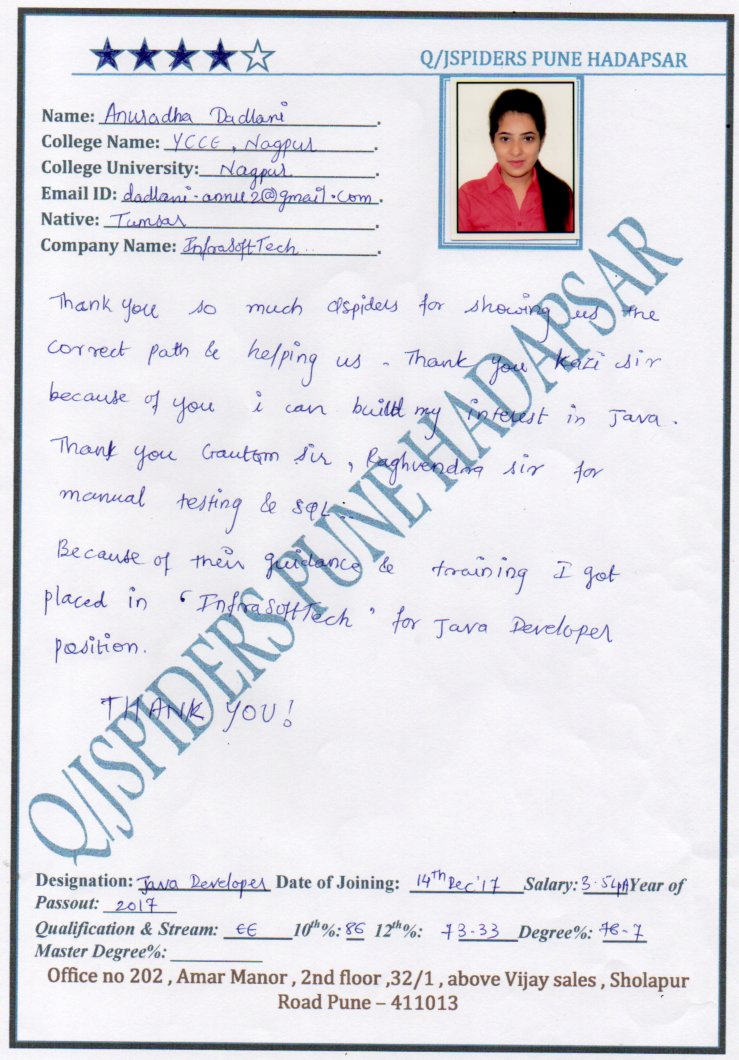 Q/JSPIDERS PUNE HADAPSAR
Name: Anuradha Dadlani.
College Name: YCCE, Nagpur.
College University: Nagpur.
Email ID: dadlani.annu2@gmail.com.
Native: Tumsar.
Company Name: InfrasoftTech.
Thank you so much Qspiders for showing us the
correct path & helping us. Thank you Kazi sir
because of you i can build my interest in Java.
Thank you Gautam Sir, Raghvendra sir for
manual testing & SQL..
Because of their guidance & training I got
placed in 'InfraSoftTech' for Java Developer
position.
THANK YOU!
Q/JSPIDERS PUNE HADAPSAR
Designation: Java Developer Date of Joining: 14th Dec'17 Salary: 3.5LPA Year of
Passout: 2017
Qualification & Stream: EE 10th%: 86 12th%: 73-33 Degree%: 78-7
Master Degree%:
Office no 202 , Amar Manor , 2nd floor ,32/1 , above Vijay sales , Sholapur
Road Pune – 411013